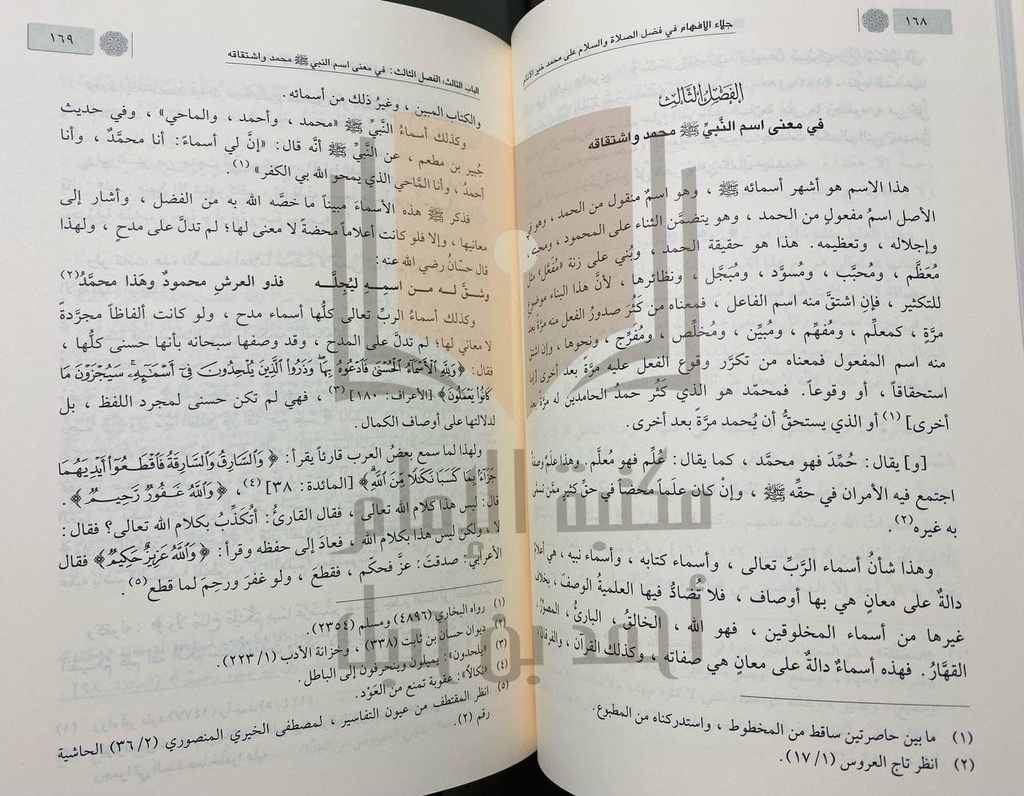 ١٦٨
جلاء الإفهام في فضل الصلاة والسلام على محمد خير الأنام
الفصل الثالث
في معنى اسم النَّبيِّ ﷺ محمد واشتقاقه
هذا الاسم هو أشهر أسمائه ﷺ ، وهو اسمٌ منقول من الحمد ، وهو في
الأصل اسمُ مفعولٍ من الحمد ، وهو يتضمَّن الثناء على المحمود ، ومحبته ،
وإجلاله ، وتعظيمه. هذا هو حقيقة الحمد ، وبُني على زنة «مُفَعَّل» مثل
مُعَظَّم ، ومُحبَّب ، ومُسوَّد ، ومُبَجَّل ، ونظائرها ، لأنَّ هذا البناء موضوع
للتكثير ، فإن اشتقَّ منه اسم الفاعل ، فمعناه من كَثُرَ صدورُ الفعل منه مرَّة بعد
مرَّة ، كمعلِّم ، ومُفهِّم ، ومُبيِّن ، ومُخلِّص ، ومُفرِّج ، ونحوها ، وإن اشتق
منه اسم المفعول فمعناه من تكرَّر وقوع الفعل عليه مرَّة بعد أخرى [إما
استحقاقاً ، أو وقوعاً. فمحمد هو الذي كَثُر حمدُ الحامدين له مرَّة بعد
أخرى](١) أو الذي يستحقُّ أن يُحمد مرَّة بعد أخرى.
[و] يقال: حُمِّدَ فهو محمَّد ، كما يقال: عُلِّم فهو مُعلَّم. وهذا علَمٌ وصفةٌ
اجتمع فيه الأمران في حقِّه ﷺ ، وإنْ كان علَماً محضاً في حقِّ كثيرٍ ممَّن تسمَّى
به غيره(٢).
وهذا شأنُ أسماء الرَّبِّ تعالى ، وأسماء كتابه ، وأسماء نبيه ، هي أعلامٌ
دالةٌ على معانٍ هي بها أوصاف ، فلا تُضادُّ فيها العلميةُ الوصفَ، بخلاف
غيرها من أسماء المخلوقين ، فهو الله ، الخالقُ ، البارئُ ، المصوِّرُ ،
القهَّارُ. فهذه أسماءٌ دالةٌ على معانٍ هي صفاته ، وكذلك القرآن ، والفرقان ،
(١) ما بين حاصرتين ساقط من المخطوط ، واستدركناه من المطبوع.
(٢) انظر تاج العروس (١/ ١٧).
١٦٩
الباب الثالث، الفصل الثالث: في معنى اسم النبي ﷺ محمد واشتقاقه
والكتاب المبين ، وغيرُ ذلك من أسمائه.
وكذلك أسماءُ النَّبيِّ ﷺ «محمد ، وأحمد ، والماحي» ، وفي حديث
جُبير بن مطعم ، عن النَّبيِّ ﷺ أنَّه قال: «إنَّ لي أسماءً: أنا محمَّدٌ ، وأنا
أحمدُ ، وأنا المَّاحي الذي يمحو الله بي الكفر»(١).
فذكر ﷺ هذه الأسماءَ مبيناً ما خصَّه الله به من الفضل ، وأشار إلى
معانيها ، وإلا فلو كانت أعلاماً محضة لا معنى لها؛ لم تدلَّ على مدحٍ ، ولهذا
قال حسَانُ رضي الله عنه:
وشقَّ لـه مـن اسمـهِ ليُجِلَّـه فذو العرشِ محمودٌ وهَذا محمَّدُ(٢)
وكذلك أسماءُ الربِّ تعالى كلُّها أسماء مدح ، ولو كانت ألفاظاً مجرَّدة
لا معاني لها؛ لم تدلَّ على المدح ، وقد وصفها سبحانه بأنها حسنى كلُّها ،
فقال: ﴿وَلِلَّهِ الْأَسْمَاءُ الْحُسْنَىٰ فَادْعُوهُ بِهَا ۖ وَذَرُوا الَّذِينَ يُلْحِدُونَ فِي أَسْمَائِهِ ۚ سَيُجْزَوْنَ مَا
كَانُوا يَعْمَلُونَ﴾ [الأعراف: ١٨٠](٣) ، فهي لم تكن حسنى لمجرد اللفظ ، بل
لدلالتها على أوصاف الكمال.
ولهذا لما سمع بعضُ العرب قارئاً يقرأ: ﴿وَالسَّارِقُ وَالسَّارِقَةُ فَاقْطَعُوا أَيْدِيَهُمَا
جَزَاءً بِمَا كَسَبَا نَكَالًا مِّنَ اللَّهِ﴾ [المائدة: ٣٨](٤) ، ﴿وَاللَّهُ غَفُورٌ رَّحِيمٌ﴾.
قال: ليس هذا كلام الله تعالى ، فقال القارئُ: أتكذِّبُ بكلام الله تعالى؟ فقال:
لا ، ولكن ليس هذا بكلام الله ، فعادَ إلى حفظه وقرأ: ﴿وَاللَّهُ عَزِيزٌ حَكِيمٌ﴾ فقال
الأعرابي: صدقتَ: عزَّ فحكَم ، فقطعَ ، ولو غفرَ ورحِمَ لما قطع(٥).
(١) رواه البخاري (٤٨٩٦) ومسلم (٢٣٥٤).
(٢) ديوان حسان بن ثابت (٣٣٨) ، وخزانة الأدب (١/ ٢٢٣).
(٣) «يلحدون»: يميلون وينحرفون إلى الباطل.
(٤) «نكالاً»: عقوبة تمنع من العَوْد.
(٥) انظر المقتطف من عيون التفاسير ، لمصطفى الخيري المنصوري (٢/ ٣٦) الحاشية
رقم (٢).
مكتبة الإمام
أحمد بن